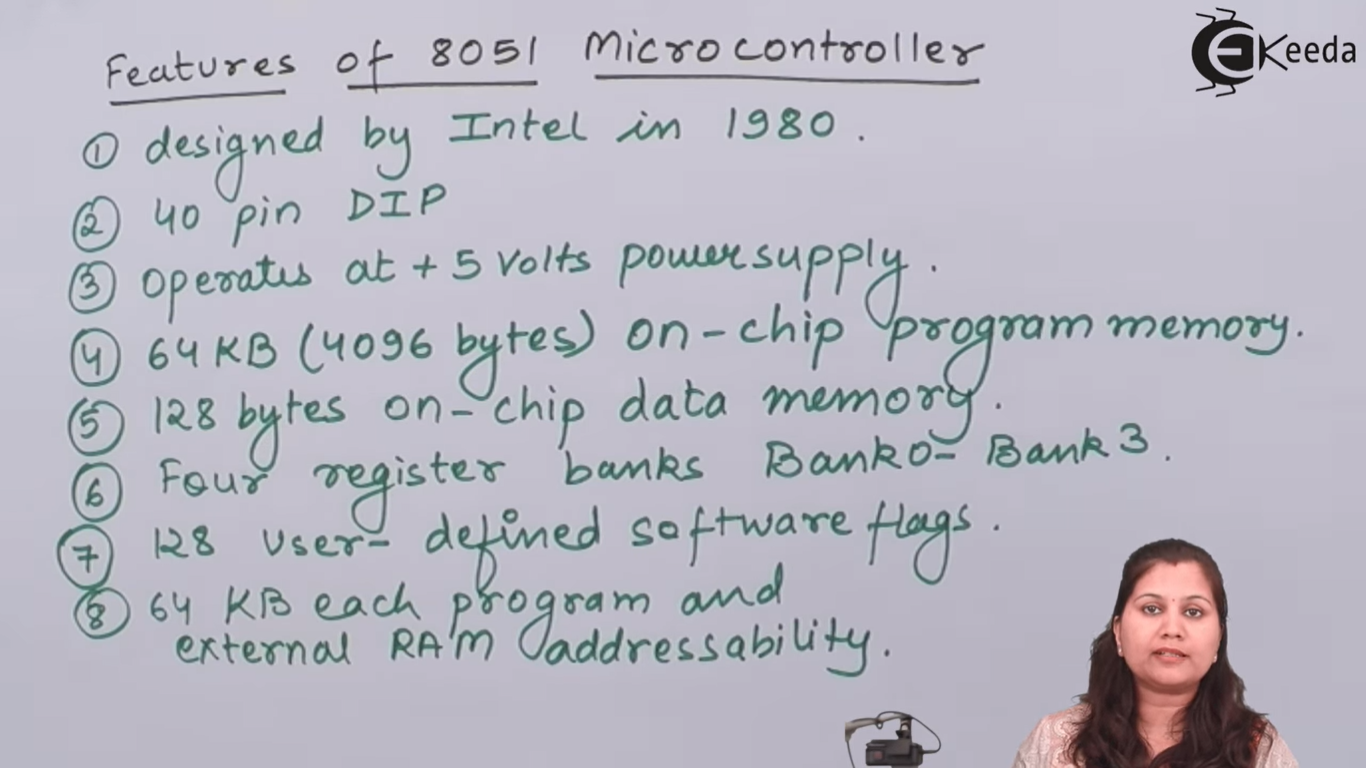 Features of 8051 Microcontroller
EKeeda
① designed by Intel in 1980.
② 40 pin DIP
③ operates at +5 volts powersupply.
④ 64 KB (4096 bytes) on-chip program memory.
⑤ 128 bytes on-chip data memory.
⑥ Four register banks Bank0- Bank3.
⑦ 128 User-defined software flags.
⑧ 64 KB each program and
external RAM addressability.